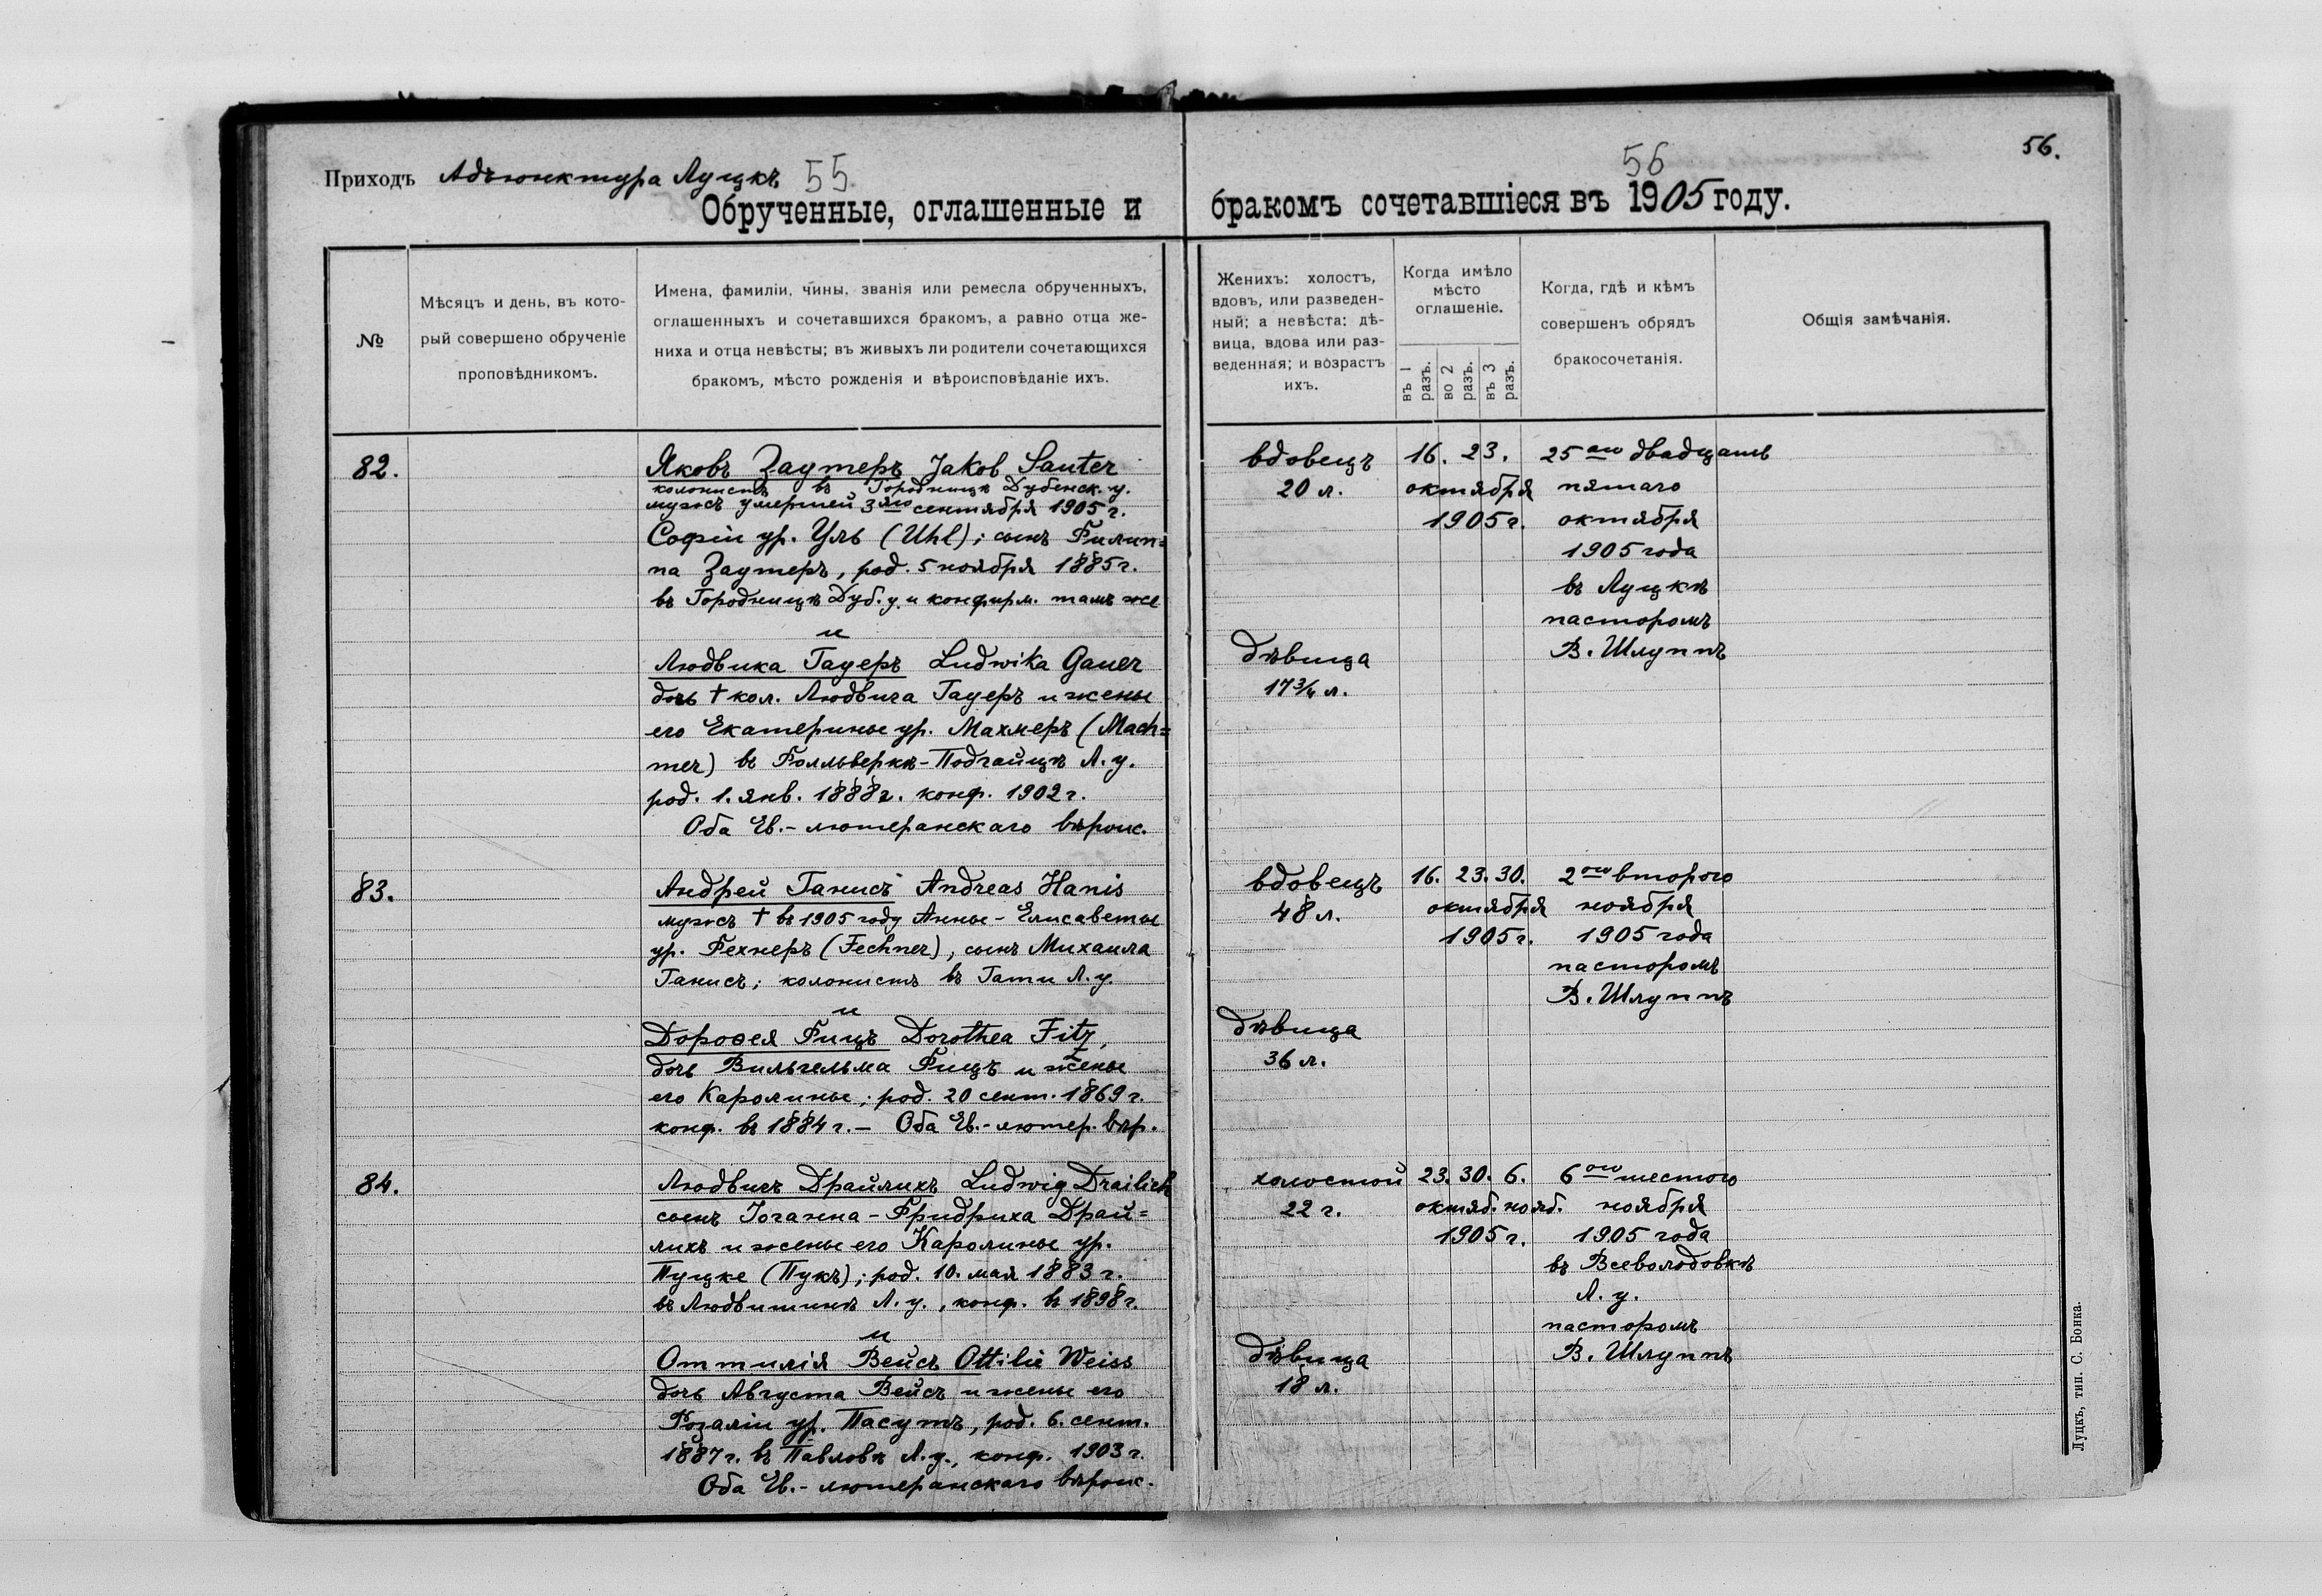 56.
56
Приходъ Адъюнктура Луцкъ 55
Обрученные, оглашенные и бракомъ сочетавшіеся въ 1905 году.
№
Мѣсяцъ и день, въ кото-
рый совершено обрученіе
проповѣдникомъ.
Имена, фамиліи, чины, званія или ремесла обрученныхъ,
оглашенныхъ и сочетавшихся бракомъ, а равно отца же-
ниха и отца невѣсты; въ живыхъ ли родители сочетающихся
бракомъ, мѣсто рожденія и вѣроисповѣданіе ихъ.
Женихъ: холостъ,
вдовъ, или разведен-
ный; а невѣста: дѣ-
вица, вдова или раз-
веденная; и возрастъ
ихъ.
Когда имѣло
мѣсто
оглашеніе.
въ 1 разъ.
во 2 разъ.
въ 3 разъ.
Когда, гдѣ и кѣмъ
совершенъ обрядъ
бракосочетанія.
Общія замѣчанія.
82.
Яковъ Заутеръ Jakob Sauter
колонистъ въ Городницѣ Дубенск. у.
мужъ умершей 3яго сентября 1905 г.
Софіи ур. Уль (Uhl); сынъ Филип=
па Заутеръ, род. 5 ноября 1885 г.
въ Городницѣ Дуб. у. и конфирм. тамъ же
и
Людвика Гауеръ Ludwika Gauer
дочь † кол. Людвига Гауеръ и жены
его Екатерины ур. Махмеръ (Mach=
mer) въ Фолльверкѣ-Подгайцѣ Л. у.
род. 1. янв. 1888 г. конф. 1902 г.
Оба Ев.-лютеранскаго вѣроис.
вдовецъ
20 л.
дѣвица
17¾ л.
16. 23.
октября
1905 г.
25аго двадцать
пятаго
октября
1905 года
въ Луцкѣ
пасторомъ
В. Шлуппъ
83.
Андрей Ганисъ Andreas Hanis
мужъ † въ 1905 году Анны-Елисаветы
ур. Фехнеръ (Fechner), сынъ Михаила
Ганисъ; колонистъ въ Гати Л. у.
и
Дороѳея Фицъ Dorothea Fitz,
дочь Вильгельма Фицъ и жены
его Каролины; род. 20 сент. 1869 г.
конф. въ 1884 г. – Оба Ев.-лютер. вѣр.
вдовецъ
48 л.
дѣвица
36 л.
16. 23. 30.
октября
1905 г.
2ого второго
ноября
1905 года
пасторомъ
В. Шлуппъ
84.
Людвигъ Драйлихъ Ludwig Drailich
сынъ Іоганна-Фридриха Драй=
лихъ и жены его Каролины ур.
Пуцке (Пукъ); род. 10. мая 1883 г.
въ Людвишинѣ Л. у., конф. въ 1898 г.
и
Оттилія Вейсъ Ottilie Weiss
дочь Августа Вейсъ и жены его
Розаліи ур. Пасутъ, род. 6. сент.
1887 г. въ Павловѣ Л. у., конф. 1903 г.
Оба Ев.-лютеранскаго вѣроис.
холостой
22 г.
дѣвица
18 л.
23. 30. 6.
октяб. нояб.
1905 г.
6ого шестого
ноября
1905 года
въ Всеволодовкѣ
Л. у.
пасторомъ
В. Шлуппъ
Луцкъ, тип. С. Бонка.